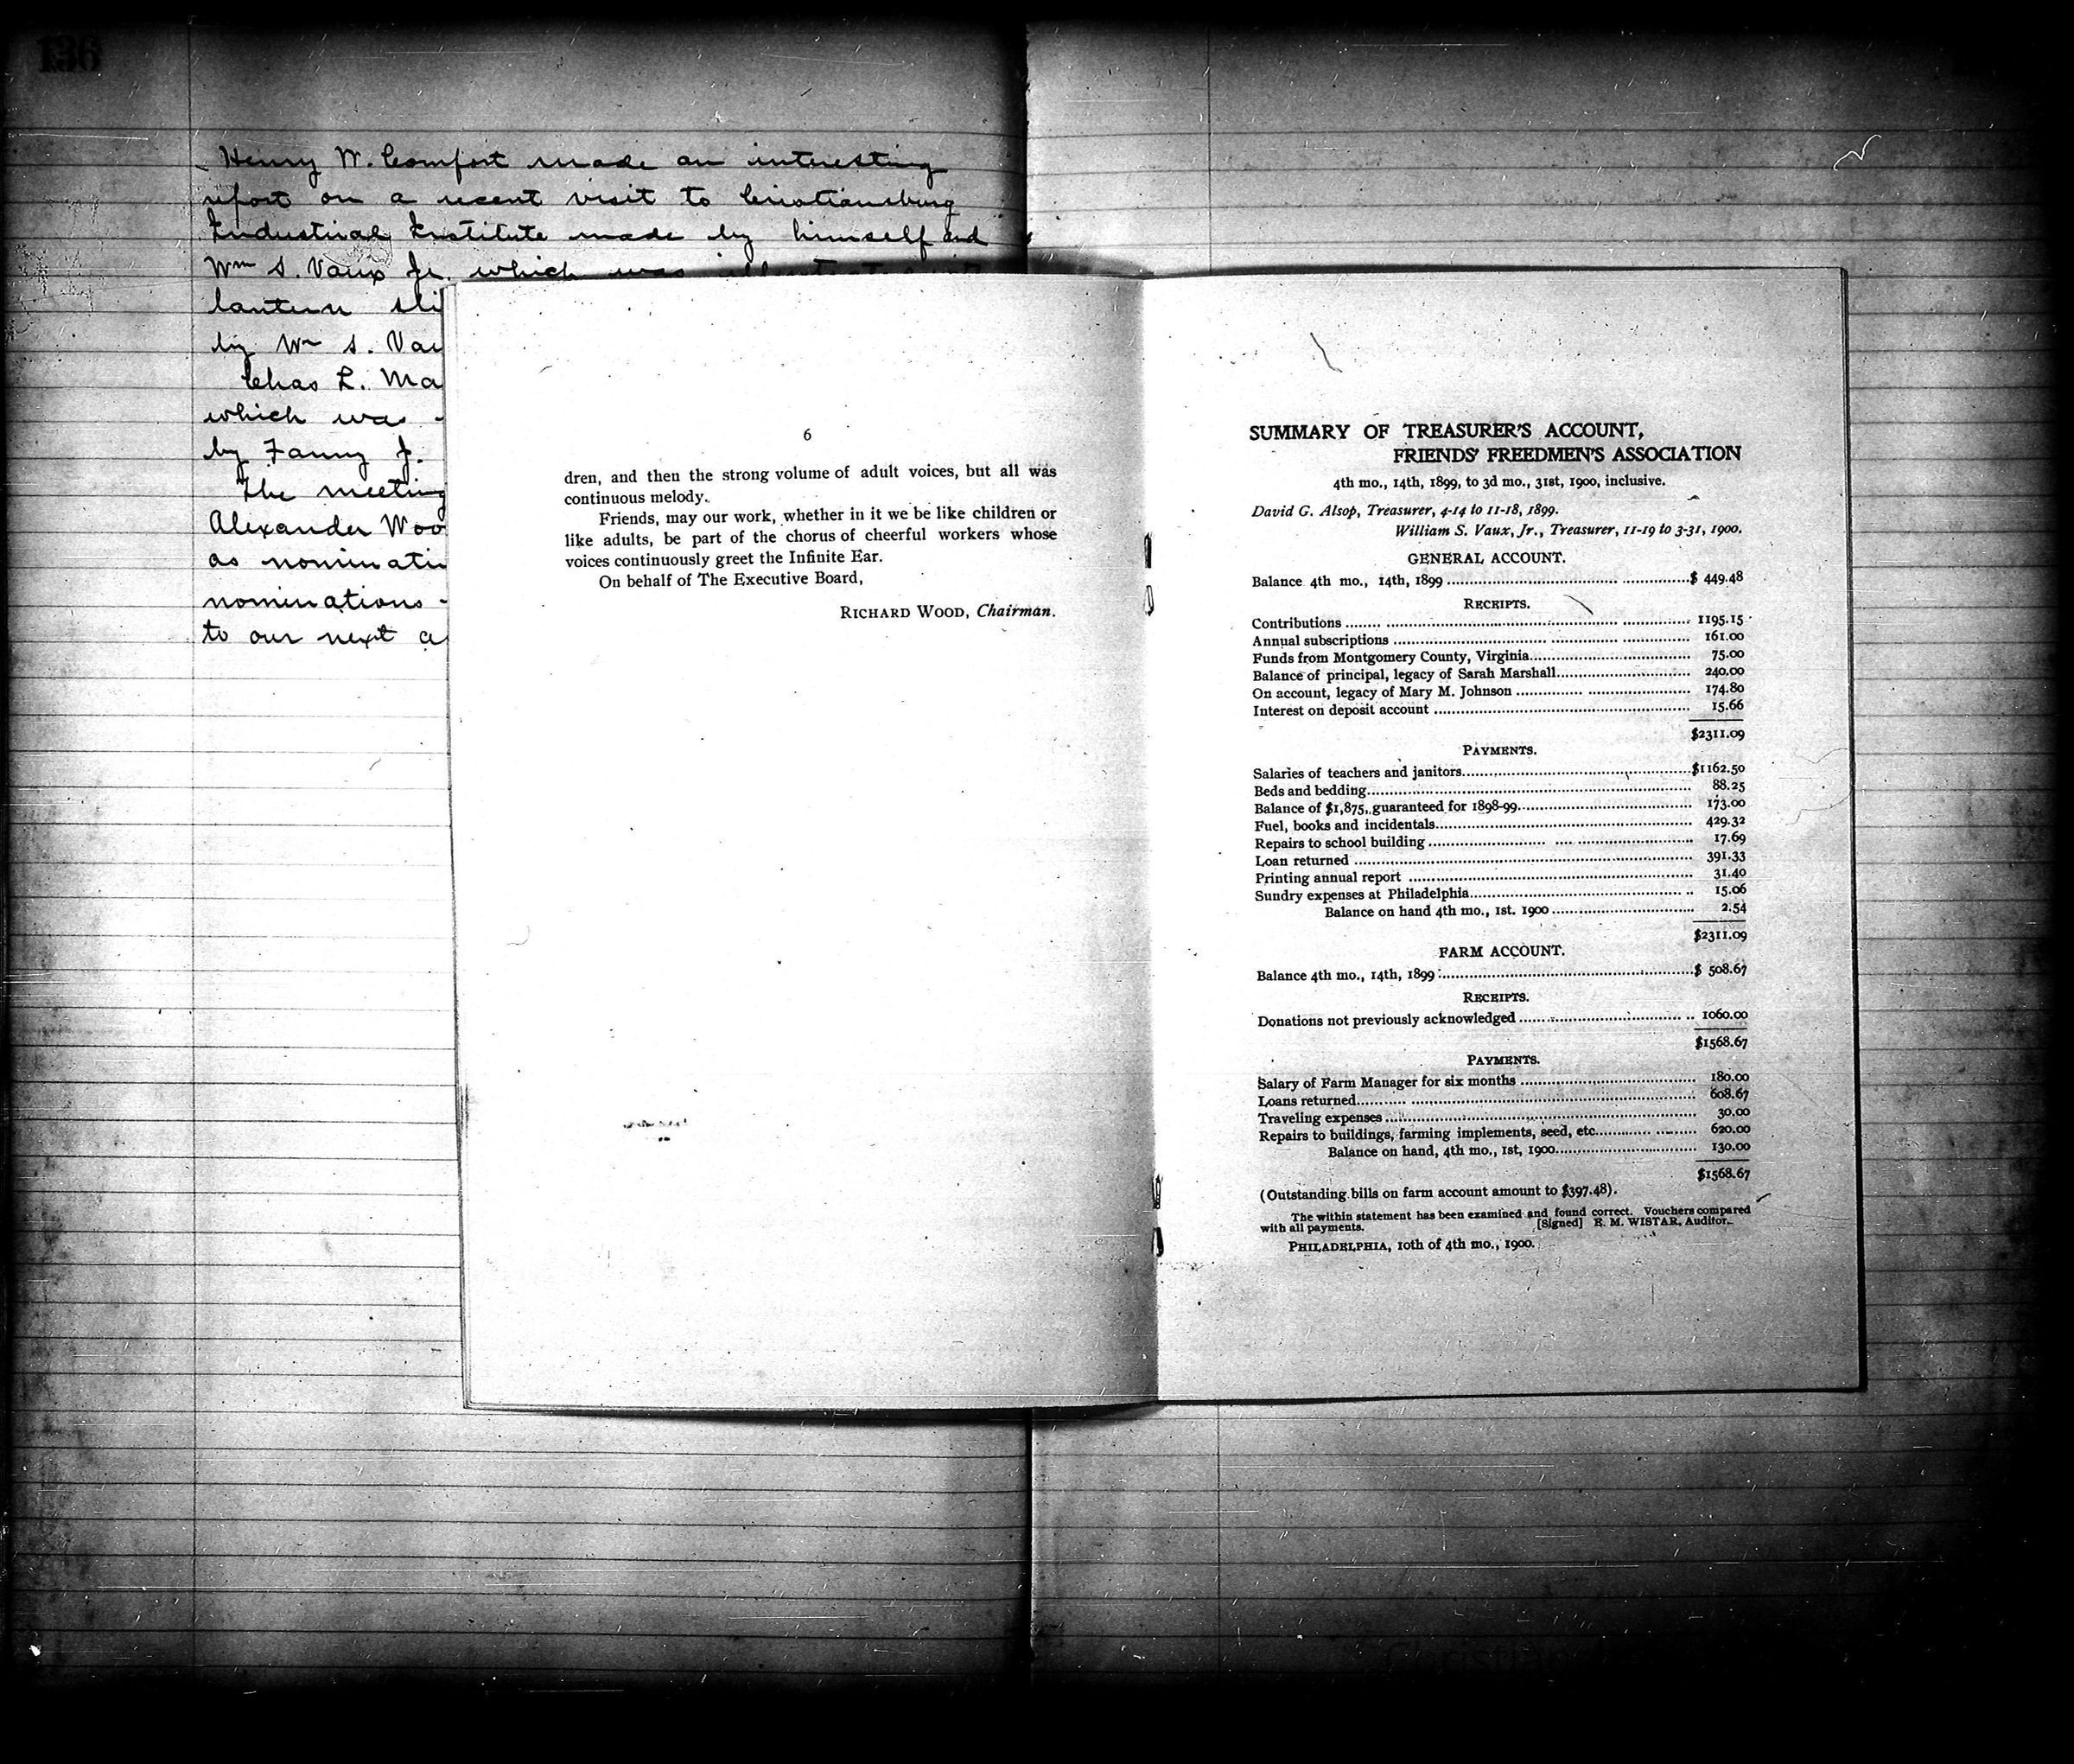 136
Henry W. Comfort made an interesting
report on a recent visit to Cristiansburg
Industrial Institute made by himself and
Wm S. Vaux Jr. which was
lantern sli
by Wm S. Vau
Chas L. Ma
which was
by Fanny J.
The meeting
Alexander Woo
as nominatin
nominations
to our next a
6
dren, and then the strong volume of adult voices, but all was
continuous melody.
Friends, may our work, whether in it we be like children or
like adults, be part of the chorus of cheerful workers whose
voices continuously greet the Infinite Ear.
On behalf of The Executive Board,
RICHARD WOOD, Chairman.
SUMMARY OF TREASURER'S ACCOUNT,
FRIENDS' FREEDMEN'S ASSOCIATION
4th mo., 14th, 1899, to 3d mo., 31st, 1900, inclusive.
David G. Alsop, Treasurer, 4-14 to 11-18, 1899.
William S. Vaux, Jr., Treasurer, 11-19 to 3-31, 1900.
GENERAL ACCOUNT.
Balance 4th mo., 14th, 1899 $ 449.48
RECEIPTS.
Contributions 1195.15
Annual subscriptions 161.00
Funds from Montgomery County, Virginia 75.00
Balance of principal, legacy of Sarah Marshall 240.00
On account, legacy of Mary M. Johnson 174.80
Interest on deposit account 15.66
$2311.09
PAYMENTS.
Salaries of teachers and janitors $1162.50
Beds and bedding 88.25
Balance of $1,875, guaranteed for 1898-99 173.00
Fuel, books and incidentals 429.32
Repairs to school building 17.69
Loan returned 391.33
Printing annual report 31.40
Sundry expenses at Philadelphia 15.06
Balance on hand 4th mo., 1st. 1900 2.54
$2311.09
FARM ACCOUNT.
Balance 4th mo., 14th, 1899 $ 508.67
RECEIPTS.
Donations not previously acknowledged 1060.00
$1568.67
PAYMENTS.
Salary of Farm Manager for six months 180.00
Loans returned 608.67
Traveling expenses 30.00
Repairs to buildings, farming implements, seed, etc. 620.00
Balance on hand, 4th mo., 1st, 1900 130.00
$1568.67
(Outstanding bills on farm account amount to $397.48).
The within statement has been examined and found correct. Vouchers compared
with all payments. [Signed] E. M. WISTAR, Auditor.
PHILADELPHIA, 10th of 4th mo., 1900.
Christian